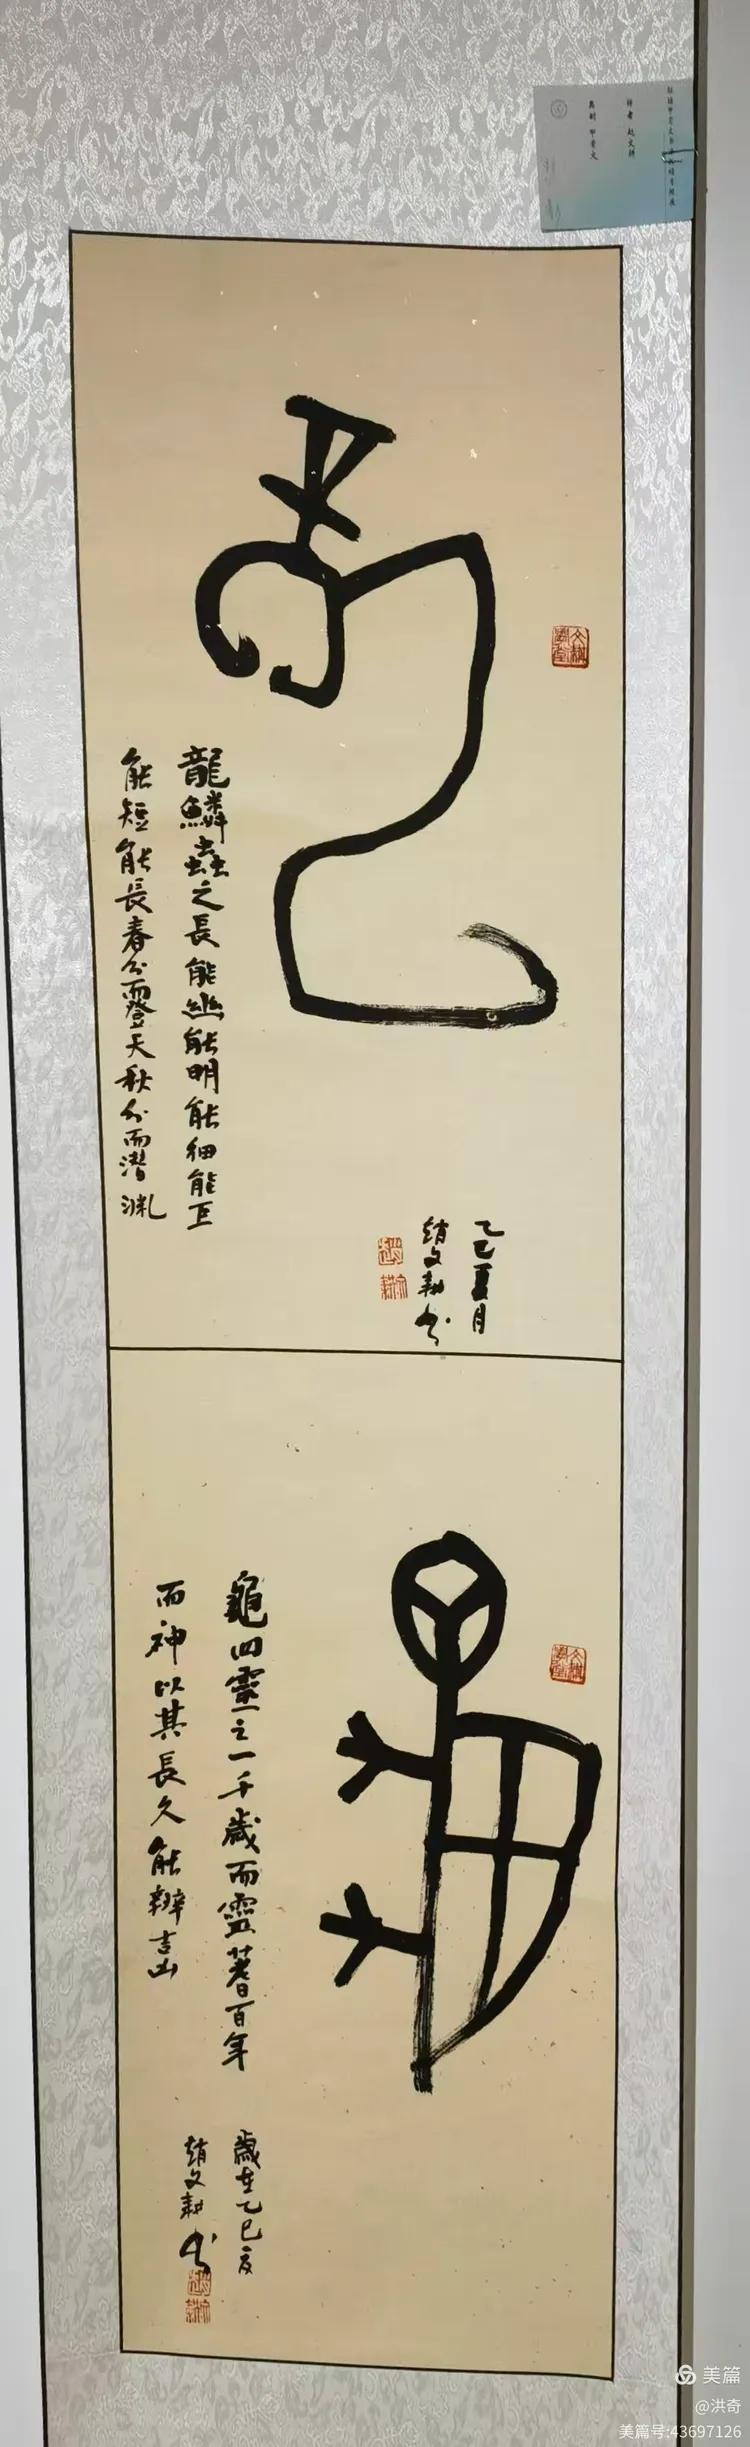 龍
龍鱗蟲之長能幽能明能細能巨
能短能長春分而登天秋分而潛淵
乙巳夏月
趙文耕書
龜
龜四靈之一千歲而靈蓍百年
而神以其長久能辨吉凶
歲在乙巳夏
趙文耕書
作者 赵文耕
美篇
@洪奇
美篇号:43697126